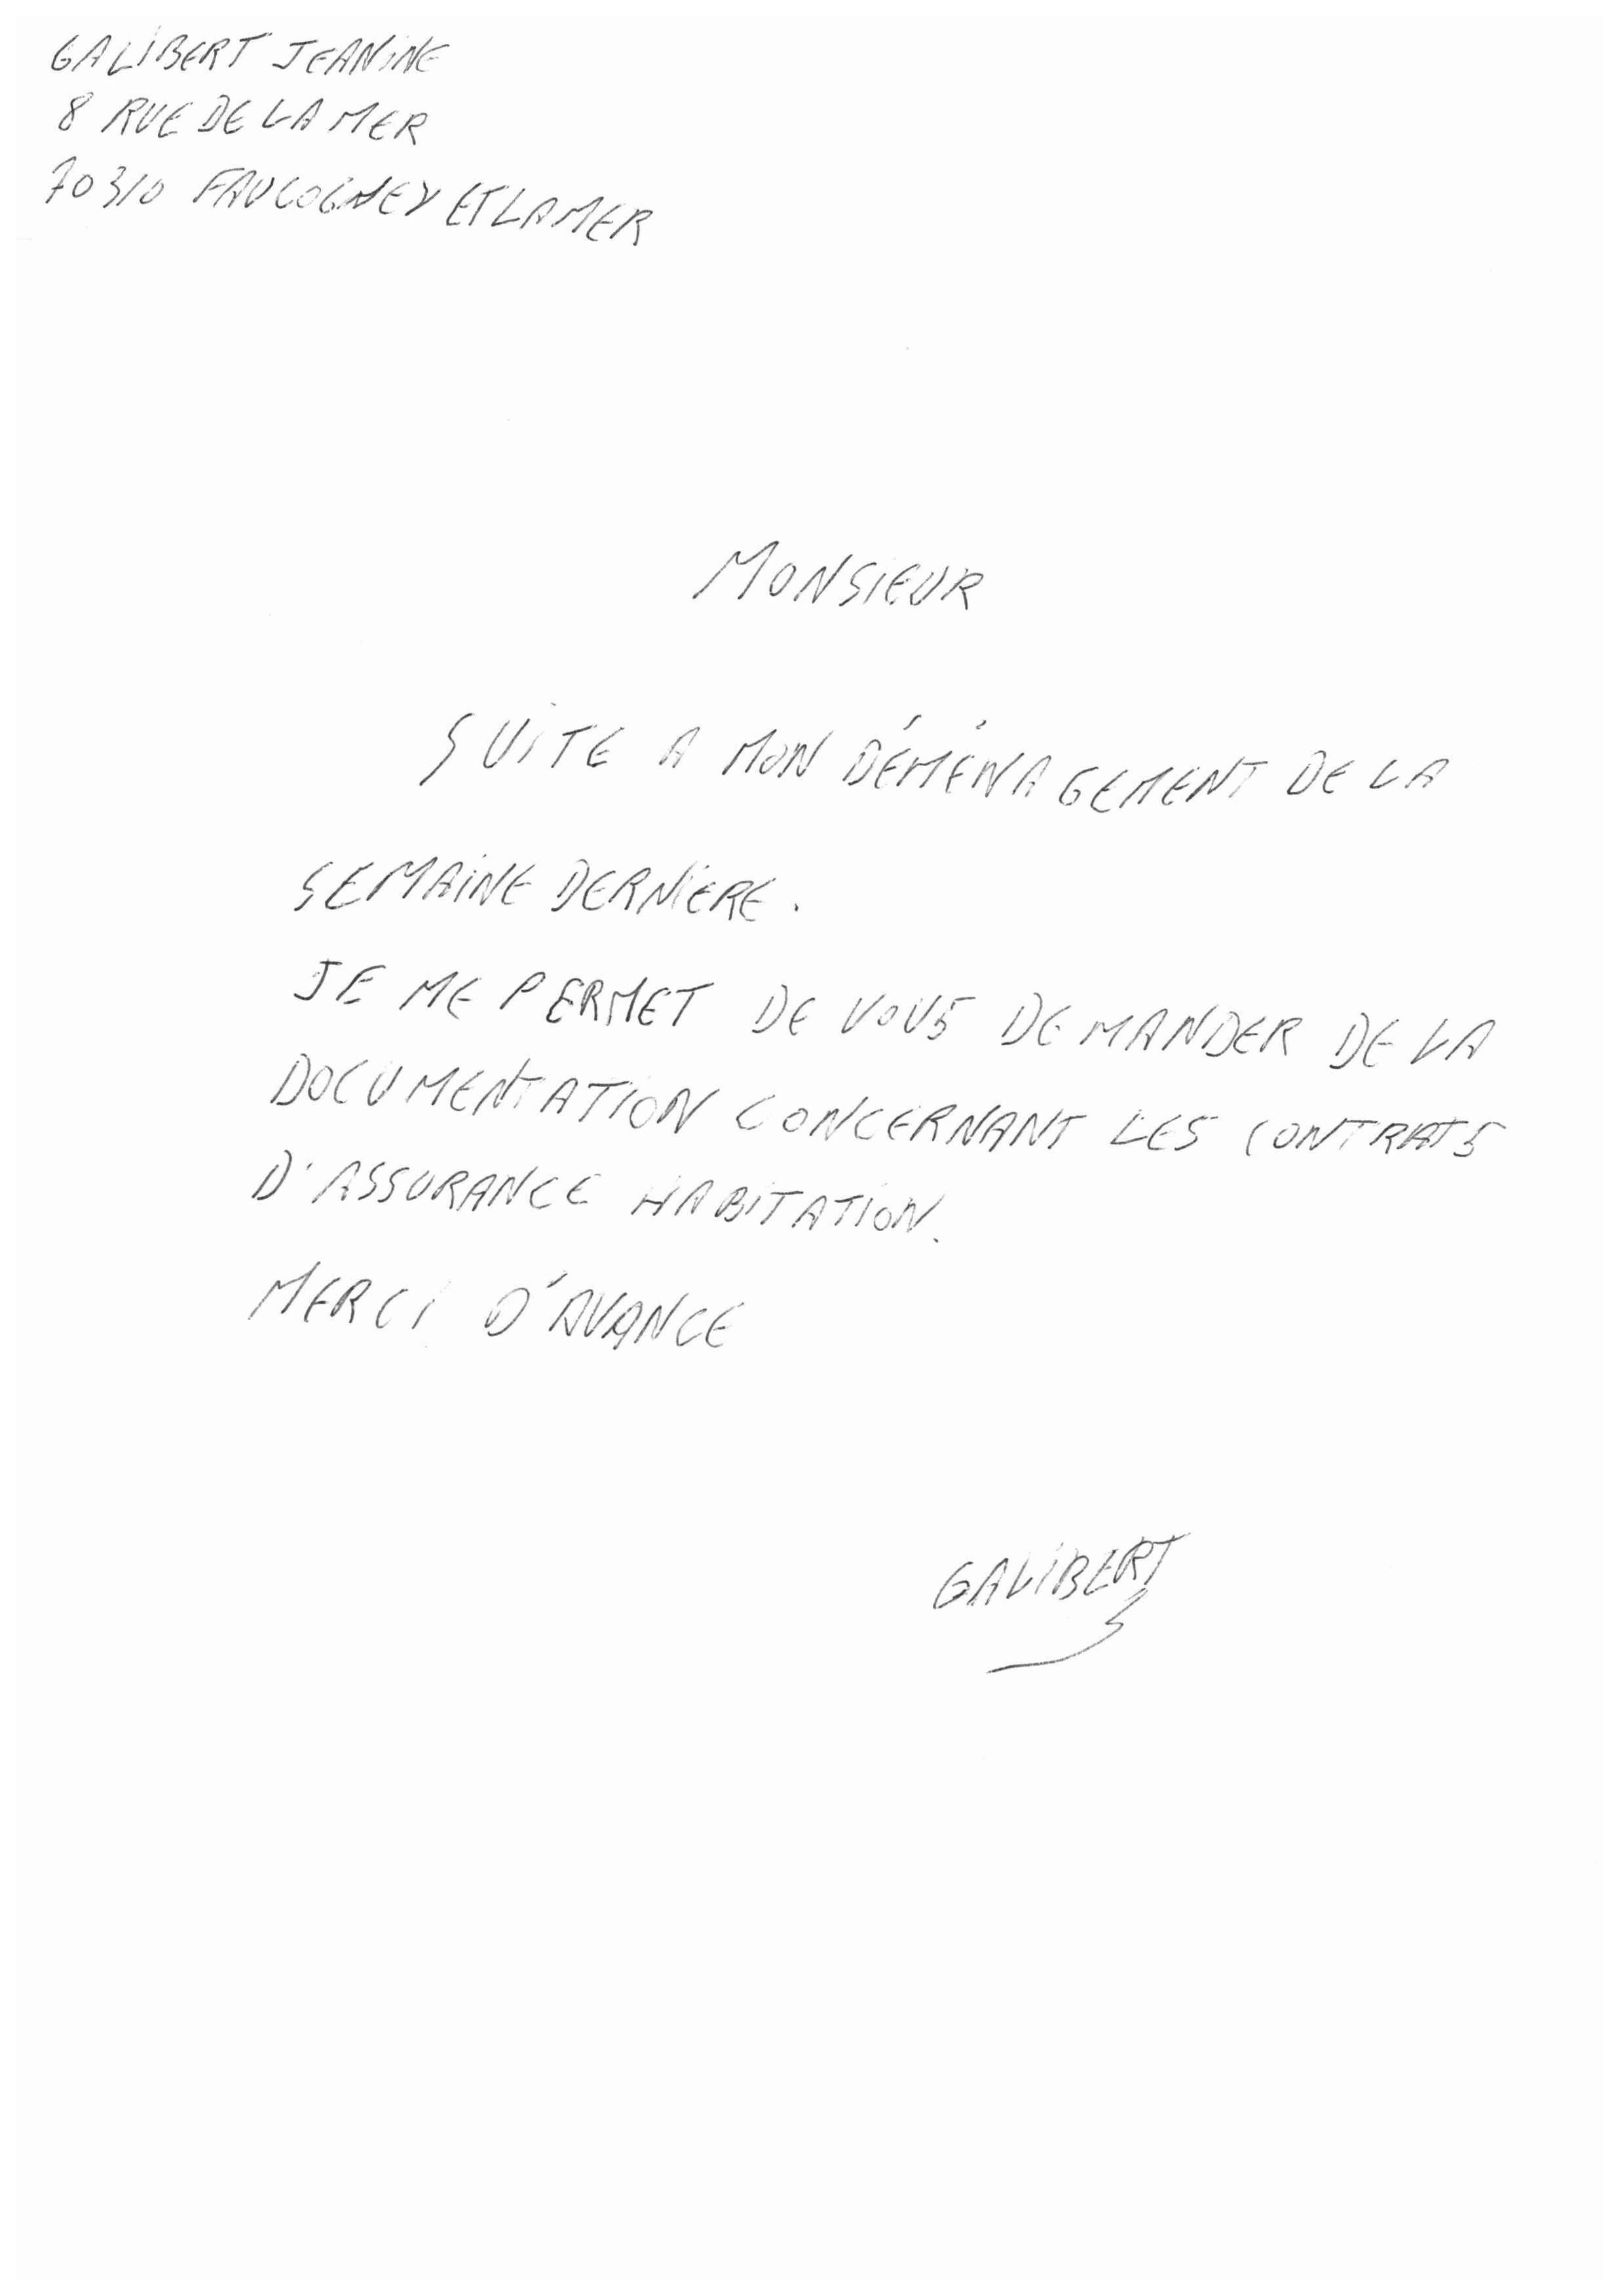 GALIBERT JEANINE
8 RUE DE LA MER
70310 FAUCOGNEY ET LA MER
MONSIEUR
SUITE A MON DÉMÉNAGEMENT DE LA
SEMAINE DERNIERE.
JE ME PERMET DE VOUS DEMANDER DE LA
DOCUMENTATION CONCERNANT LES CONTRATS
D'ASSURANCE HABITATION.
MERCI D'AVANCE
GALIBERT